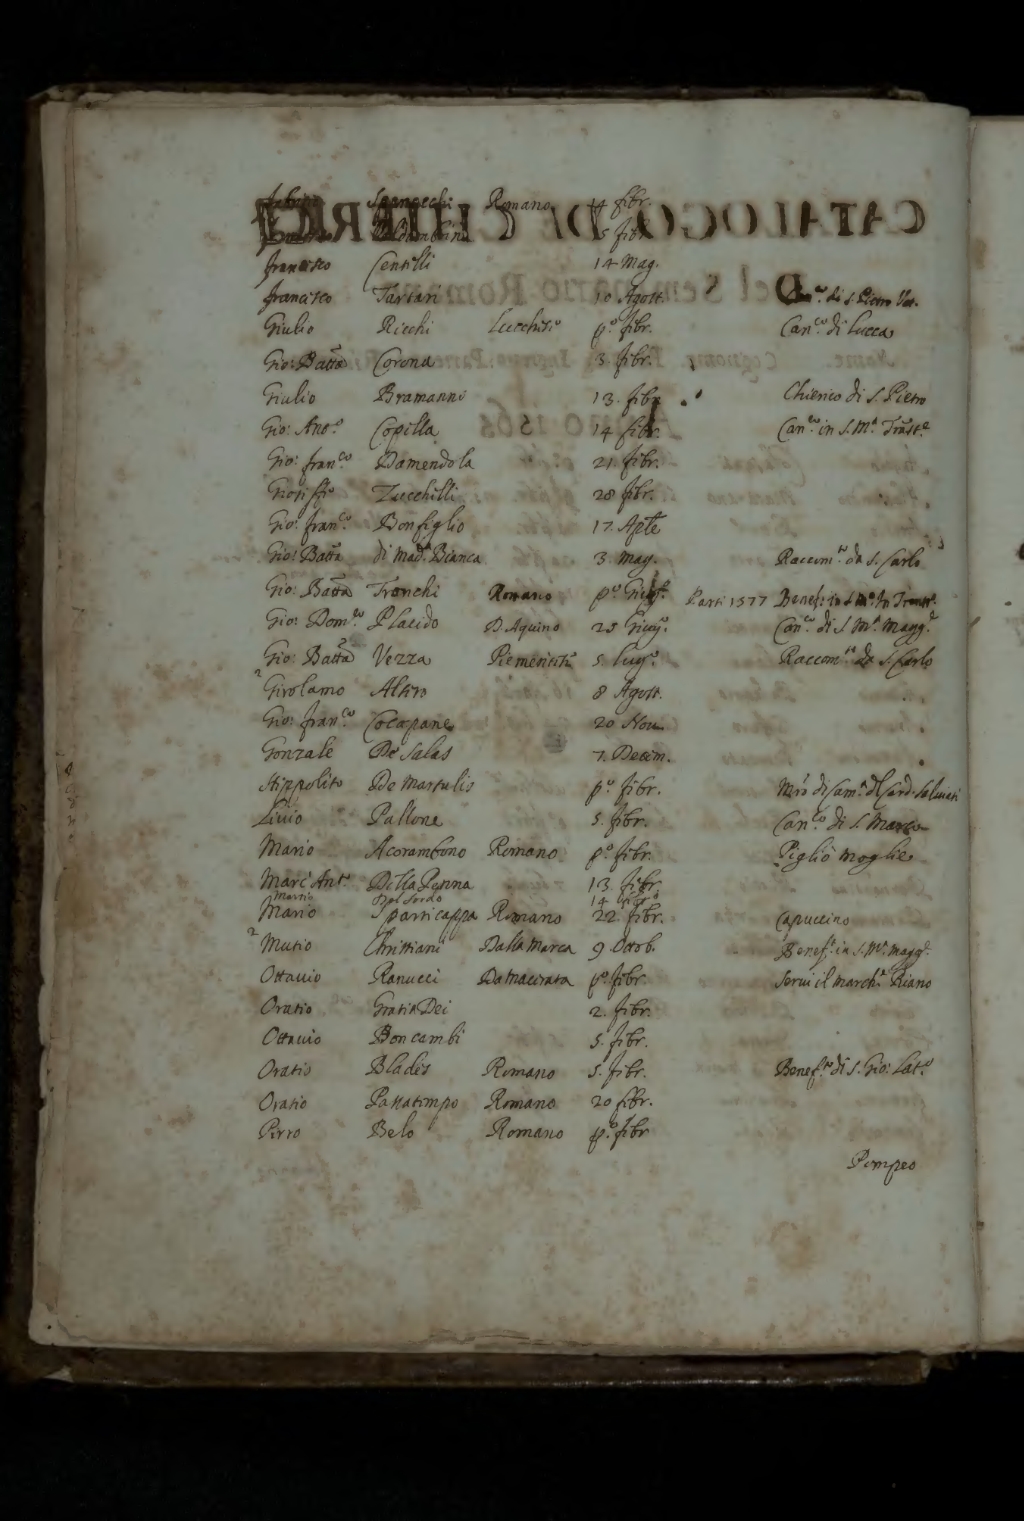 Romano 14 fibr.
5 fibr.
francisco Centilli 14 Mag.
francisco Tartari 10 Agost. Can.co di S. Pietro Vat.
Giulio Ricchi Lucchese p.o fibr. Can.co di Lucca
Gio: Batta Corona 3. fibr.
Giulio Bramanni 13. fibr. Chierico di S. Pietro
Gio: Ano.o Copilla 14 fibr. Can.co in S. M.a Trast.e
Gio: fran.co Damendola 21. fibr.
Zucchelli 28 fibr.
Gio: fran.co Bonfiglio 17. Aple
Gio: Batta di Mad.a Bianca 3. mag. da S. Carlo
Gio: Batta Tronchi Romano p.o Parti 1577
Gio: Dom.co Placido D. Aquino 25 Giug.o Can.co di S. M.a Magg.e
Gio: Batta Vezza 5. lug.o S. Carlo
2 Girolamo Altiro 8 Agost.
Gio: fran.co Cocapane 20 Nou.
Gonzale De Salas 7. Decem.
Hippolito De Martulis p.o fibr.
Liuio Pallone 5. fibr. Can.co di S. Marco
Mario Acorambono Romano p.o fibr. Piglio moglie
Marc' Ant.o Della Penna 13. fibr.
Mario Sparticappa Romano 22. fibr. Capuccino
2 Mutio Christiani Dalla Marca 9 Ottob. Benef.o in S. M.a Magg.e
Ottauio Ranucci Da Macerata p.o fibr. Serui il March.e Riano
Oratio Gratia Dei 2. fibr.
Ottauio Boncambi 5. fibr.
Oratio Blades Romano 5. fibr. Benef.to di S. Gio: Lat.o
Oratio Passatempo Romano 20 fibr.
Pirro Belo Romano p.o fibr
Pompeo